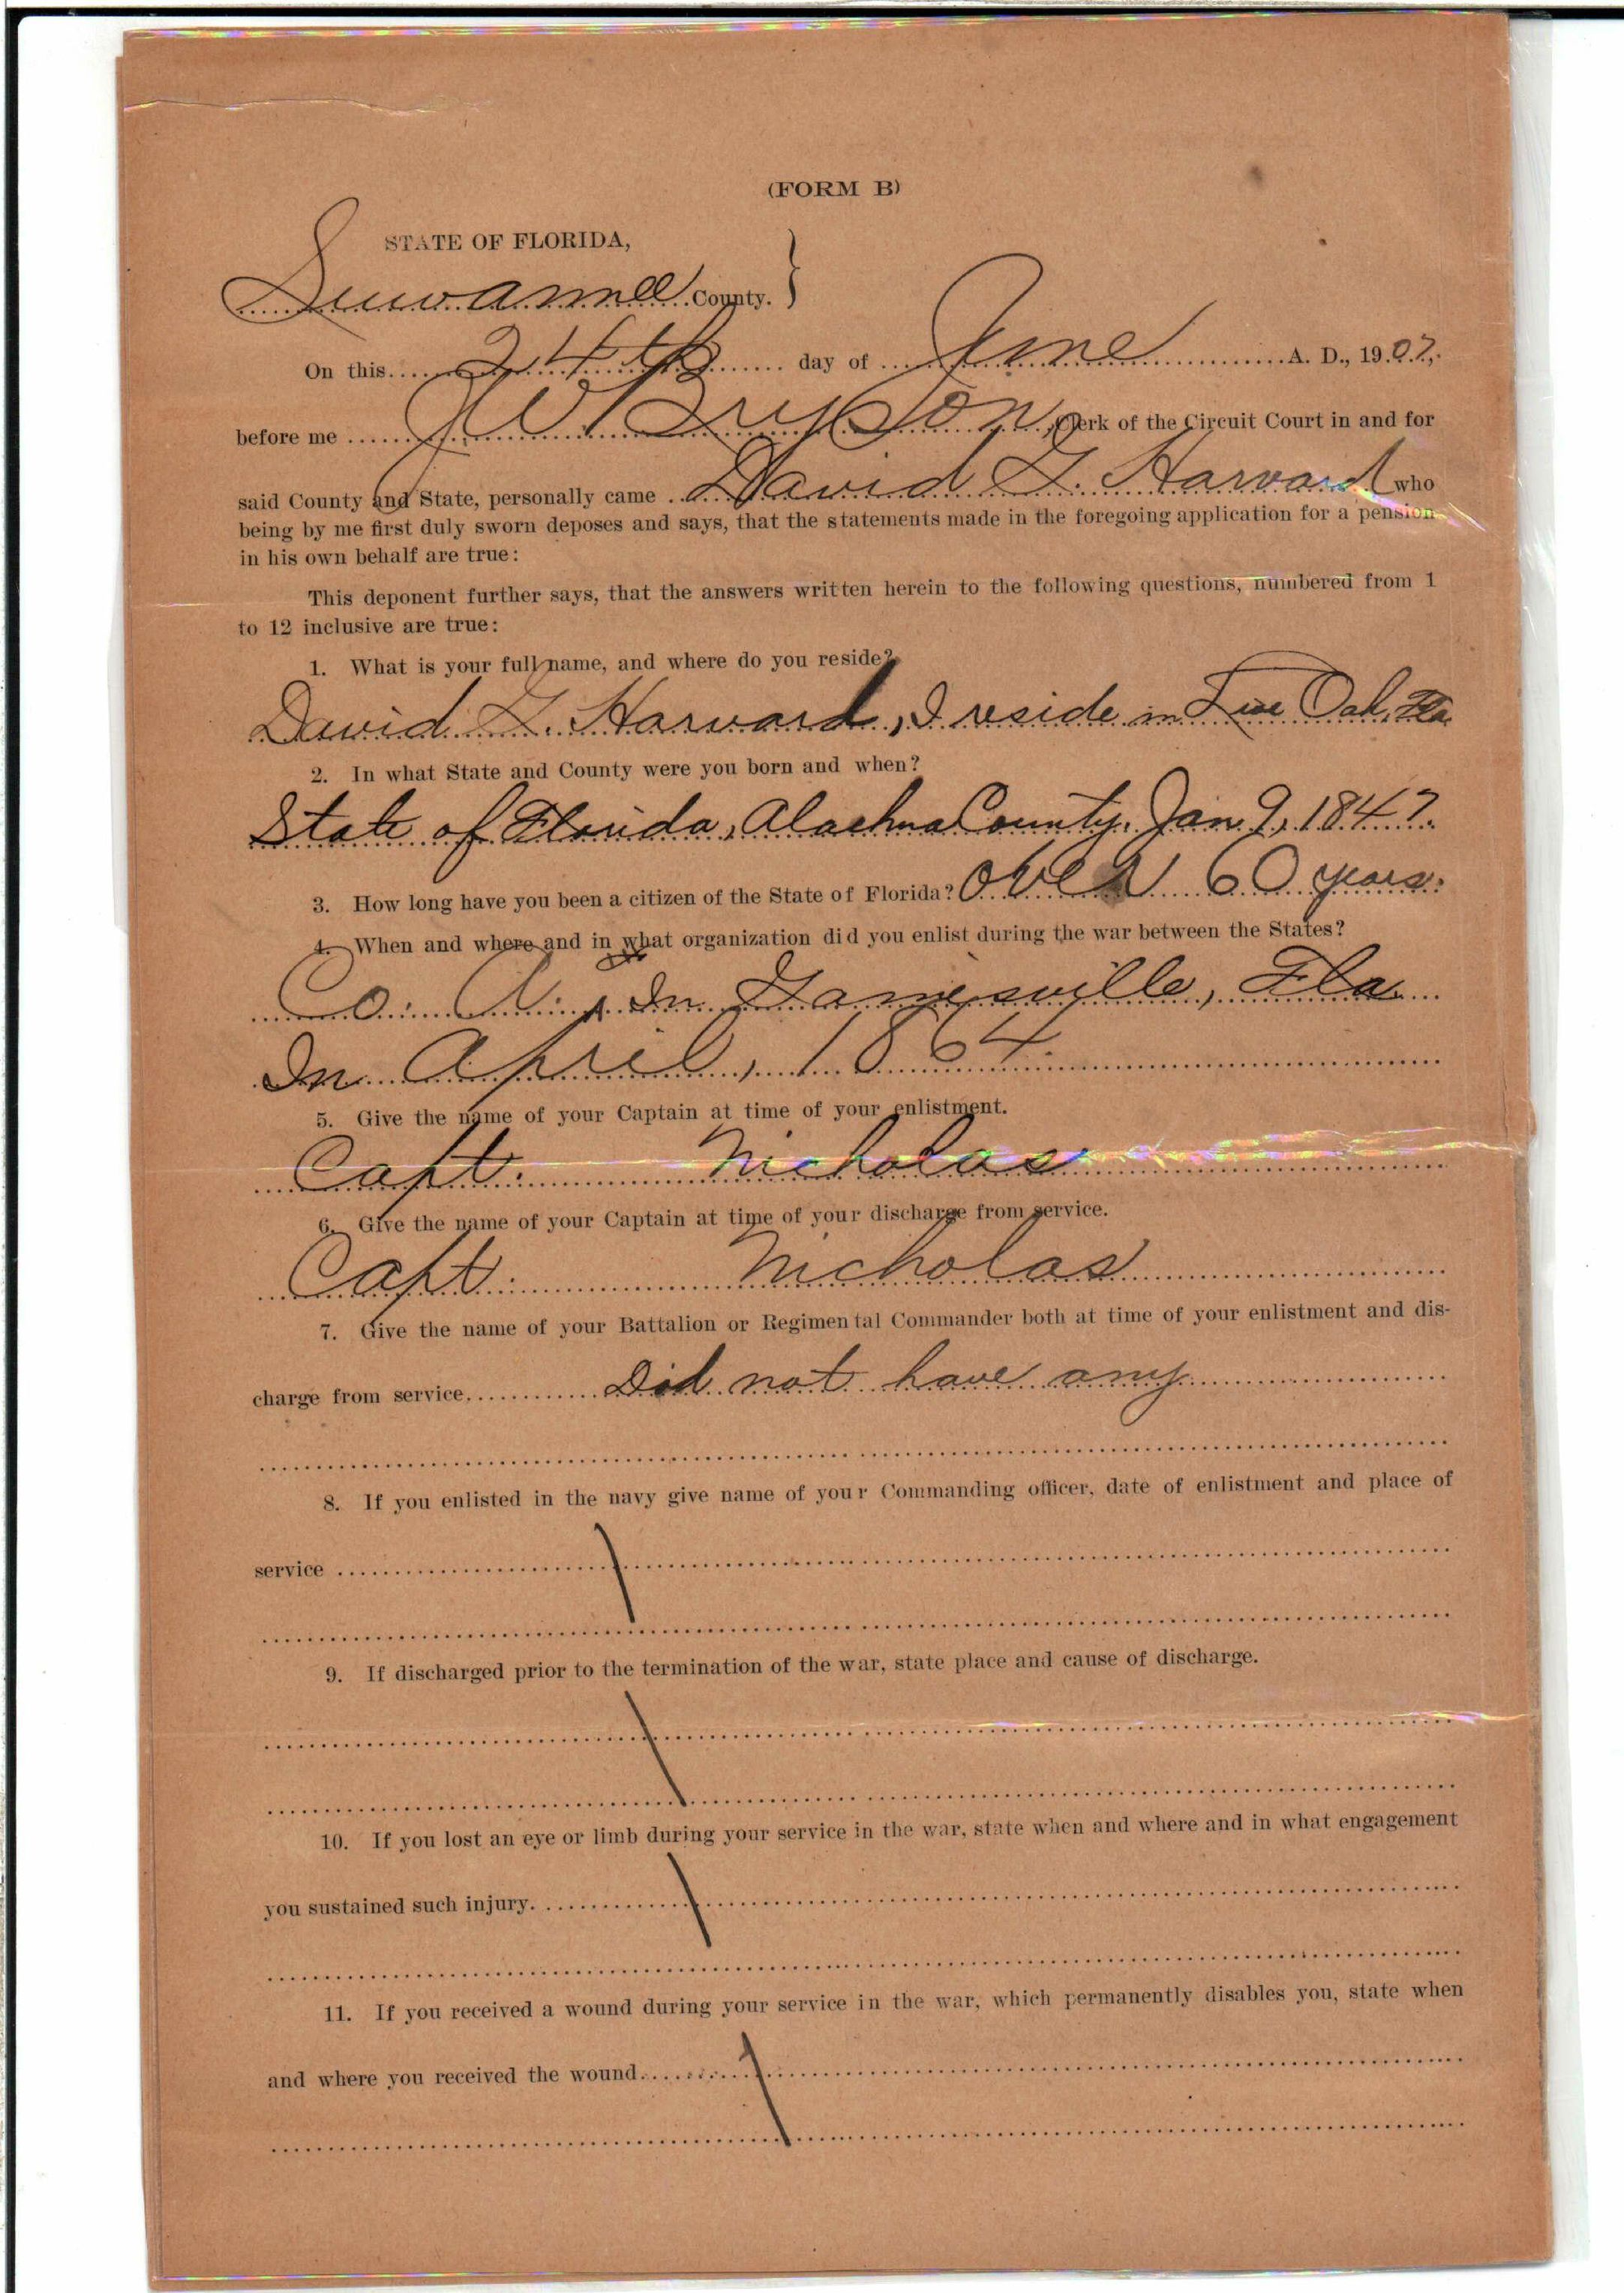 (FORM B)
STATE OF FLORIDA,
Suwannee County. }
On this 24th day of June A. D., 1907,
before me J W Bryson, Clerk of the Circuit Court in and for
said County and State, personally came David G. Harvard who
being by me first duly sworn deposes and says, that the statements made in the foregoing application for a pension
in his own behalf are true:
This deponent further says, that the answers written herein to the following questions, numbered from 1
to 12 inclusive are true:
1. What is your full name, and where do you reside?
David G. Harvard, I reside in Live Oak, Fla
2. In what State and County were you born and when?
State of Florida, Alachua County, Jan 9, 1847.
3. How long have you been a citizen of the State of Florida? Over 60 years.
4. When and where and in what organization did you enlist during the war between the States?
Co. In Gainesville, Fla.
In April, 1864.
5. Give the name of your Captain at time of your enlistment.
Capt. Nicholas
6. Give the name of your Captain at time of your discharge from service.
Capt. Nicholas
7. Give the name of your Battalion or Regimental Commander both at time of your enlistment and dis-
charge from service. Did not have any
8. If you enlisted in the navy give name of your Commanding officer, date of enlistment and place of
service
9. If discharged prior to the termination of the war, state place and cause of discharge.
10. If you lost an eye or limb during your service in the war, state when and where and in what engagement
you sustained such injury.
11. If you received a wound during your service in the war, which permanently disables you, state when
and where you received the wound.